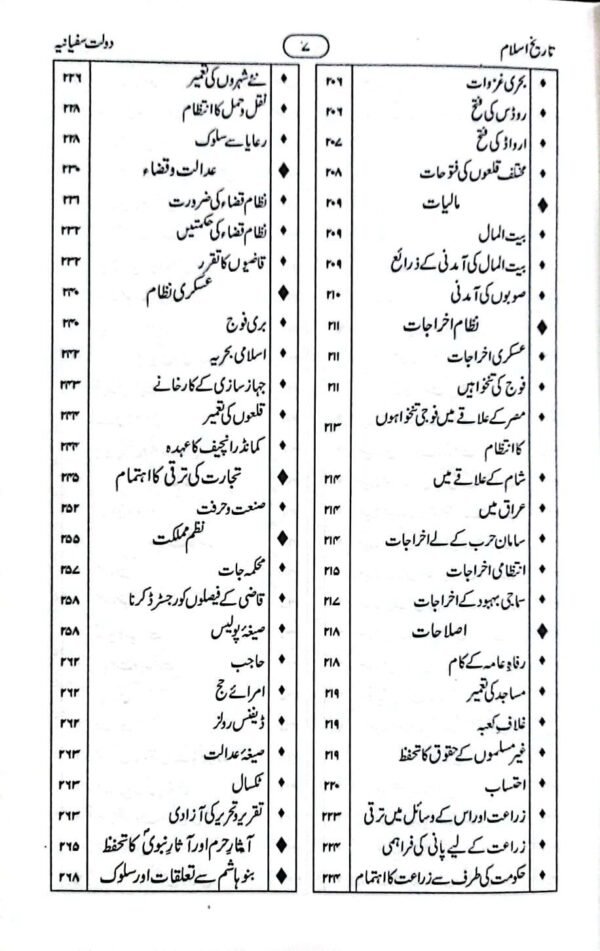 تاریخ اسلام ۷ دولت سفیانیہ
♦ بحری غزوات ۲۰۶
♦ روڈس کی فتح ۲۰۶
♦ ارواڈ کی فتح ۲۰۷
♦ مختلف قلعوں کی فتوحات ۲۰۸
♦ مالیات ۲۰۹
♦ بیت المال ۲۰۹
♦ بیت المال کی آمدنی کے ذرائع ۲۰۹
♦ صوبوں کی آمدنی ۲۱۰
♦ نظام اخراجات ۲۱۱
♦ عسکری اخراجات ۲۱۱
♦ فوج کی تنخواہیں ۲۱۱
♦ مصر کے علاقے میں فوجی تنخواہوں ۲۱۳
کا انتظام
♦ شام کے علاقے میں ۲۱۴
♦ عراق میں ۲۱۴
♦ سامان حرب کے لے اخراجات ۲۱۴
♦ انتظامی اخراجات ۲۱۵
♦ سماجی بہبود کے اخراجات ۲۱۷
♦ اصلاحات ۲۱۸
♦ رفاہِ عامہ کے کام ۲۱۸
♦ مساجد کی تعمیر ۲۱۹
♦ غلافِ کعبہ ۲۱۹
♦ غیر مسلموں کے حقوق کا تحفظ ۲۱۹
♦ احتساب ۲۲۰
♦ زراعت اور اس کے وسائل میں ترقی ۲۲۳
♦ زراعت کے لیے پانی کی فراہمی ۲۲۴
♦ حکومت کی طرف سے زراعت کا اہتمام ۲۲۴
♦ نئے شہروں کی تعمیر ۲۲۶
♦ نقل و حمل کا انتظام ۲۲۸
♦ رعایا سے سلوک ۲۲۸
♦ عدالت و قضاء ۲۳۰
♦ نظام قضاء کی ضرورت ۲۳۱
♦ نظام قضاء کی حکمتیں ۲۳۲
♦ قاضیوں کا تقرر ۲۳۲
♦ عسکری نظام ۲۴۰
♦ بری فوج ۲۴۰
♦ اسلامی بحریہ ۲۴۲
♦ جہاز سازی کے کارخانے ۲۴۳
♦ قلعوں کی تعمیر ۲۴۴
♦ کمانڈر انچیف کا عہدہ ۲۴۴
♦ تجارت کی ترقی کا اہتمام ۲۴۵
♦ صنعت و حرفت ۲۵۲
♦ نظم مملکت ۲۵۵
♦ محکمہ جات ۲۵۷
♦ قاضی کے فیصلوں کو رجسٹرڈ کرنا ۲۵۸
♦ صیغۂ پولیس ۲۵۸
♦ حاجب ۲۶۲
♦ امرائے حج ۲۶۲
♦ ڈیفنس رولز ۲۶۲
♦ صیغۂ عدالت ۲۶۳
♦ ٹکسال ۲۶۳
♦ تقریر و تحریر کی آزادی ۲۶۳
♦ آثارِ حرم اور آثارِ نبویؐ کا تحفظ ۲۶۵
♦ بنو ہاشم سے تعلقات اور سلوک ۲۶۸